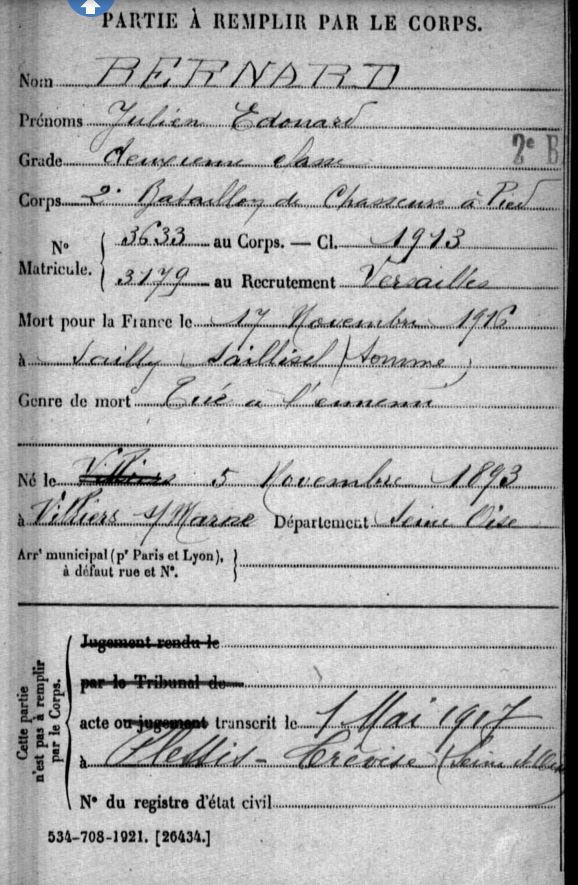 PARTIE À REMPLIR PAR LE CORPS.
Nom BERNARD
Prénoms Julien Edouard
Grade deuxième classe
2e B
Corps 2e Bataillon de Chasseurs à Pied
No Matricule. 3633 au Corps. — Cl. 1913
3179 au Recrutement Versailles
Mort pour la France le 17 Novembre 1916
à Sailly Saillisel (Somme)
Genre de mort Tué à l'ennemi
Né le Villiers 5 Novembre 1893
à Villiers s/Marne Département Seine Oise
Arrt municipal (pr Paris et Lyon),
à défaut rue et No.
Cette partie n'est pas à remplir par le Corps.
Jugement rendu le
par le Tribunal de
acte ou jugement transcrit le 1 Mai 1917
à Plessis-Trévise (Seine et Oise
No du registre d'état civil
534-708-1921. [26434.]